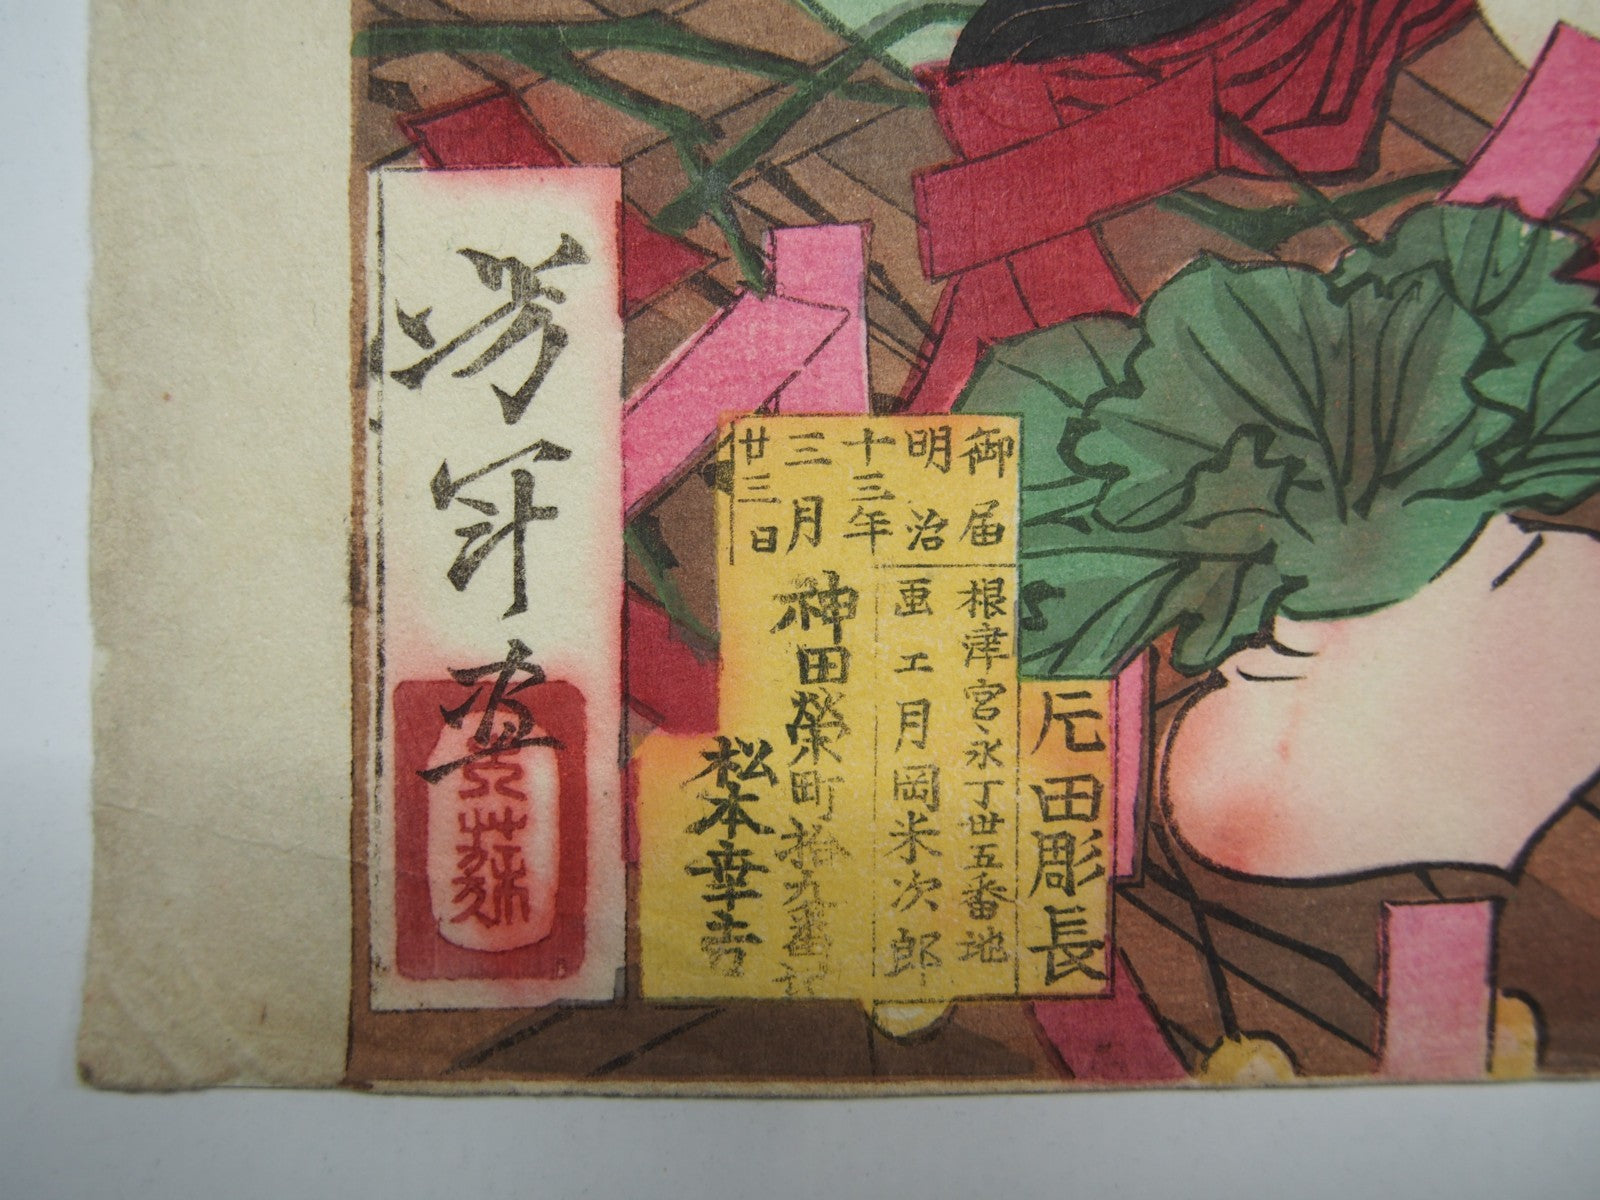 卮田彫長
御届
明治
十三年
三月
廿三日
根津宮ゝ永丁丗五番地
画工月岡米次郎
神田榮町拾九番地
松本幸吉
芳年画